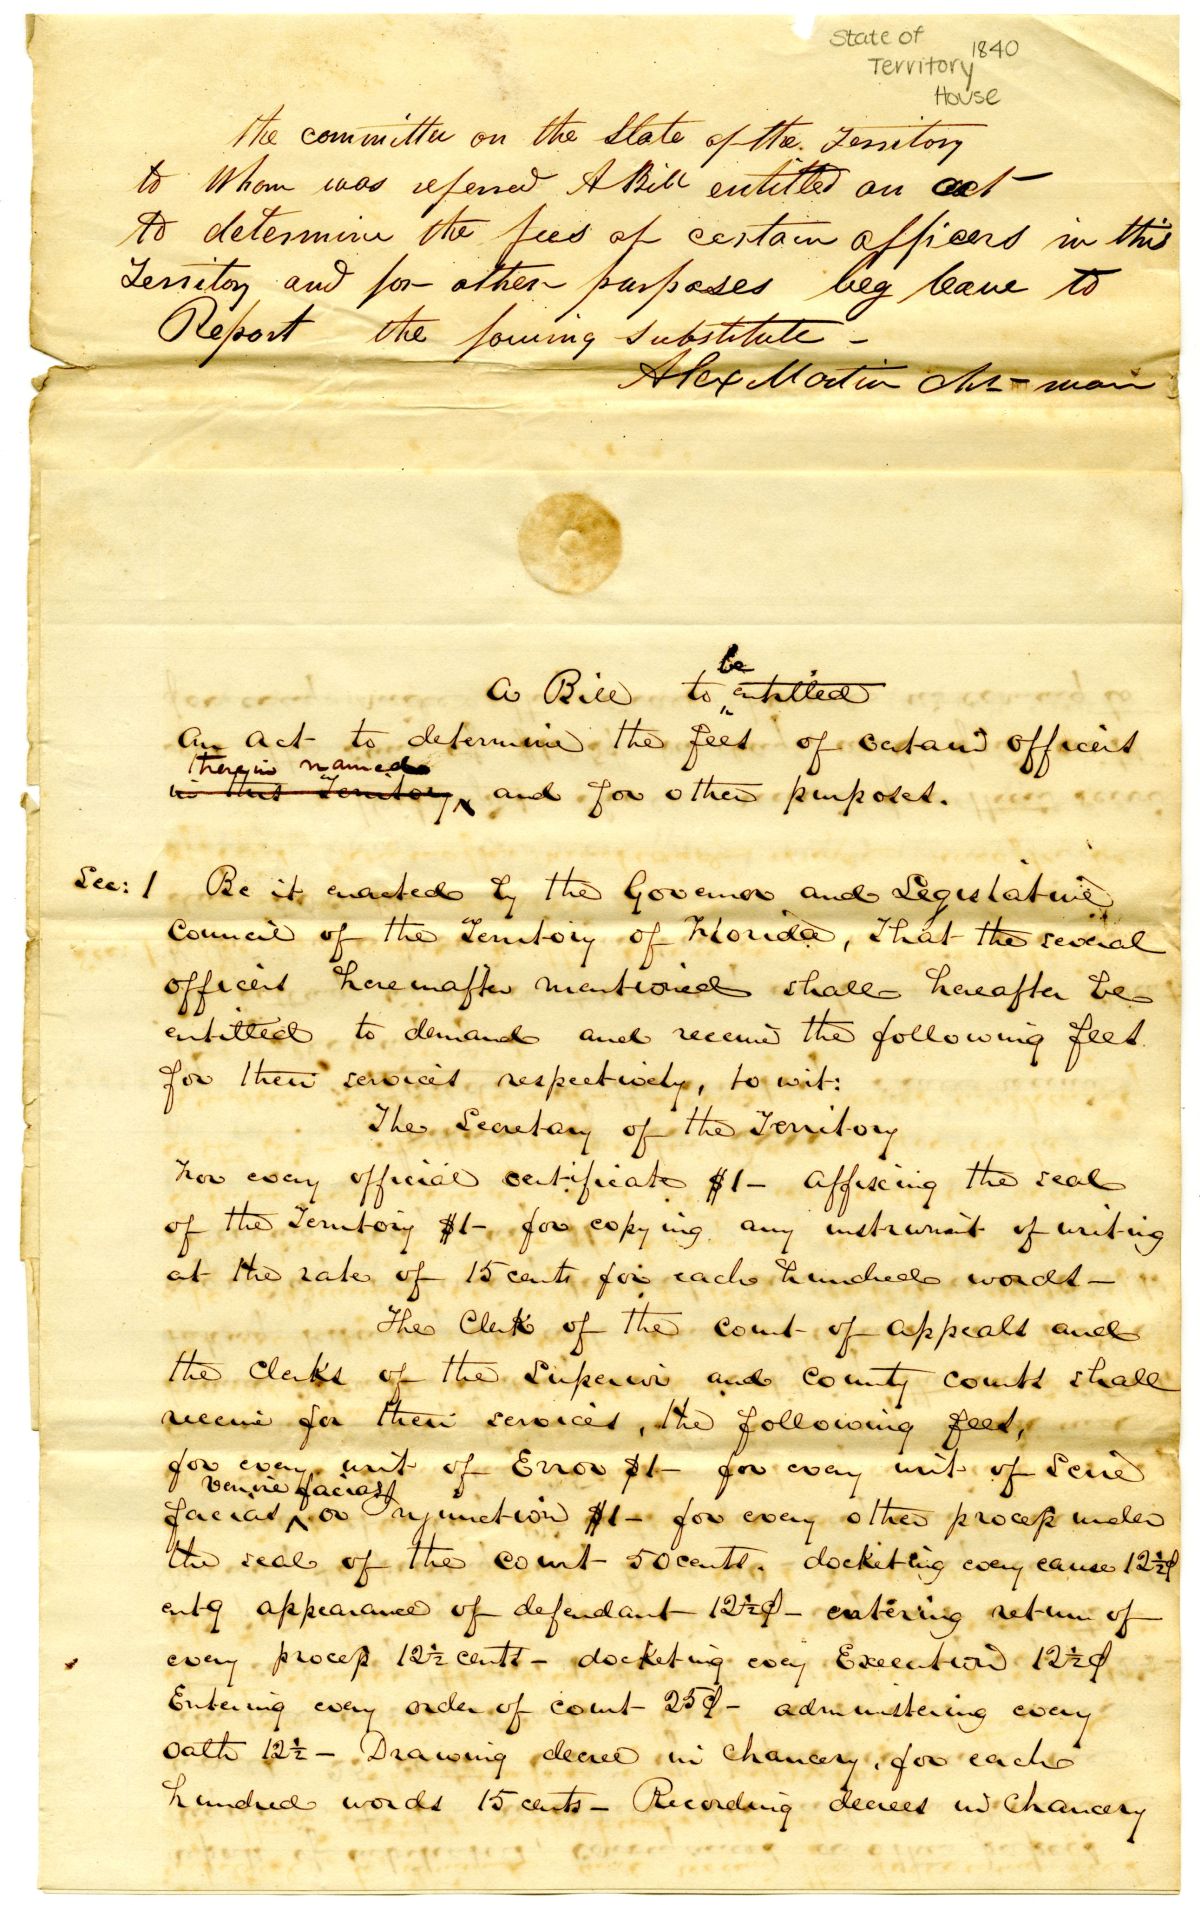 State of
1840
Territory
House
the committee on the State of the Territory
to Whom was referred A Bill entitled an act
to determine the fees of certain officers in this
Territory and for other purposes beg leave to
Report the fowing substitute -
Alex Martin Chr-man
be
A Bill to entitled
An act to determine the fees of certain officers
therein named
in this Territory, and for other purposes.
Sec: 1 Be it enacted by the Governor and Legislative
Council of the Territory of Florida, That the several
officers hereinafter mentioned shall hereafter be
entitled to demand and receive the following fees
for their services respectively, to wit:
The Secretary of the Territory
For every official certificate $1 - affixing the seal
of the Territory $1 - for copying any instrument of writing
at the rate of 15 cents for each hundred words -
The Clerk of the court of appeals and
the Clerks of the Superior and County courts shall
receive for their services, the following fees,
for every writ of Error $1 - for every writ of Scire
venire facias
facias or Injunction $1 - for every other process under
the seal of the court 50 cents. docketing every cause 12½¢
entg appearance of defendant 12½¢ - entering return of
every process 12½ cents - docketing every Execution 12½¢
Entering every order of court 25¢ - administering every
oath 12½ - Drawing decree in Chancery, for each
hundred words 15 cents - Recording decrees in Chancery